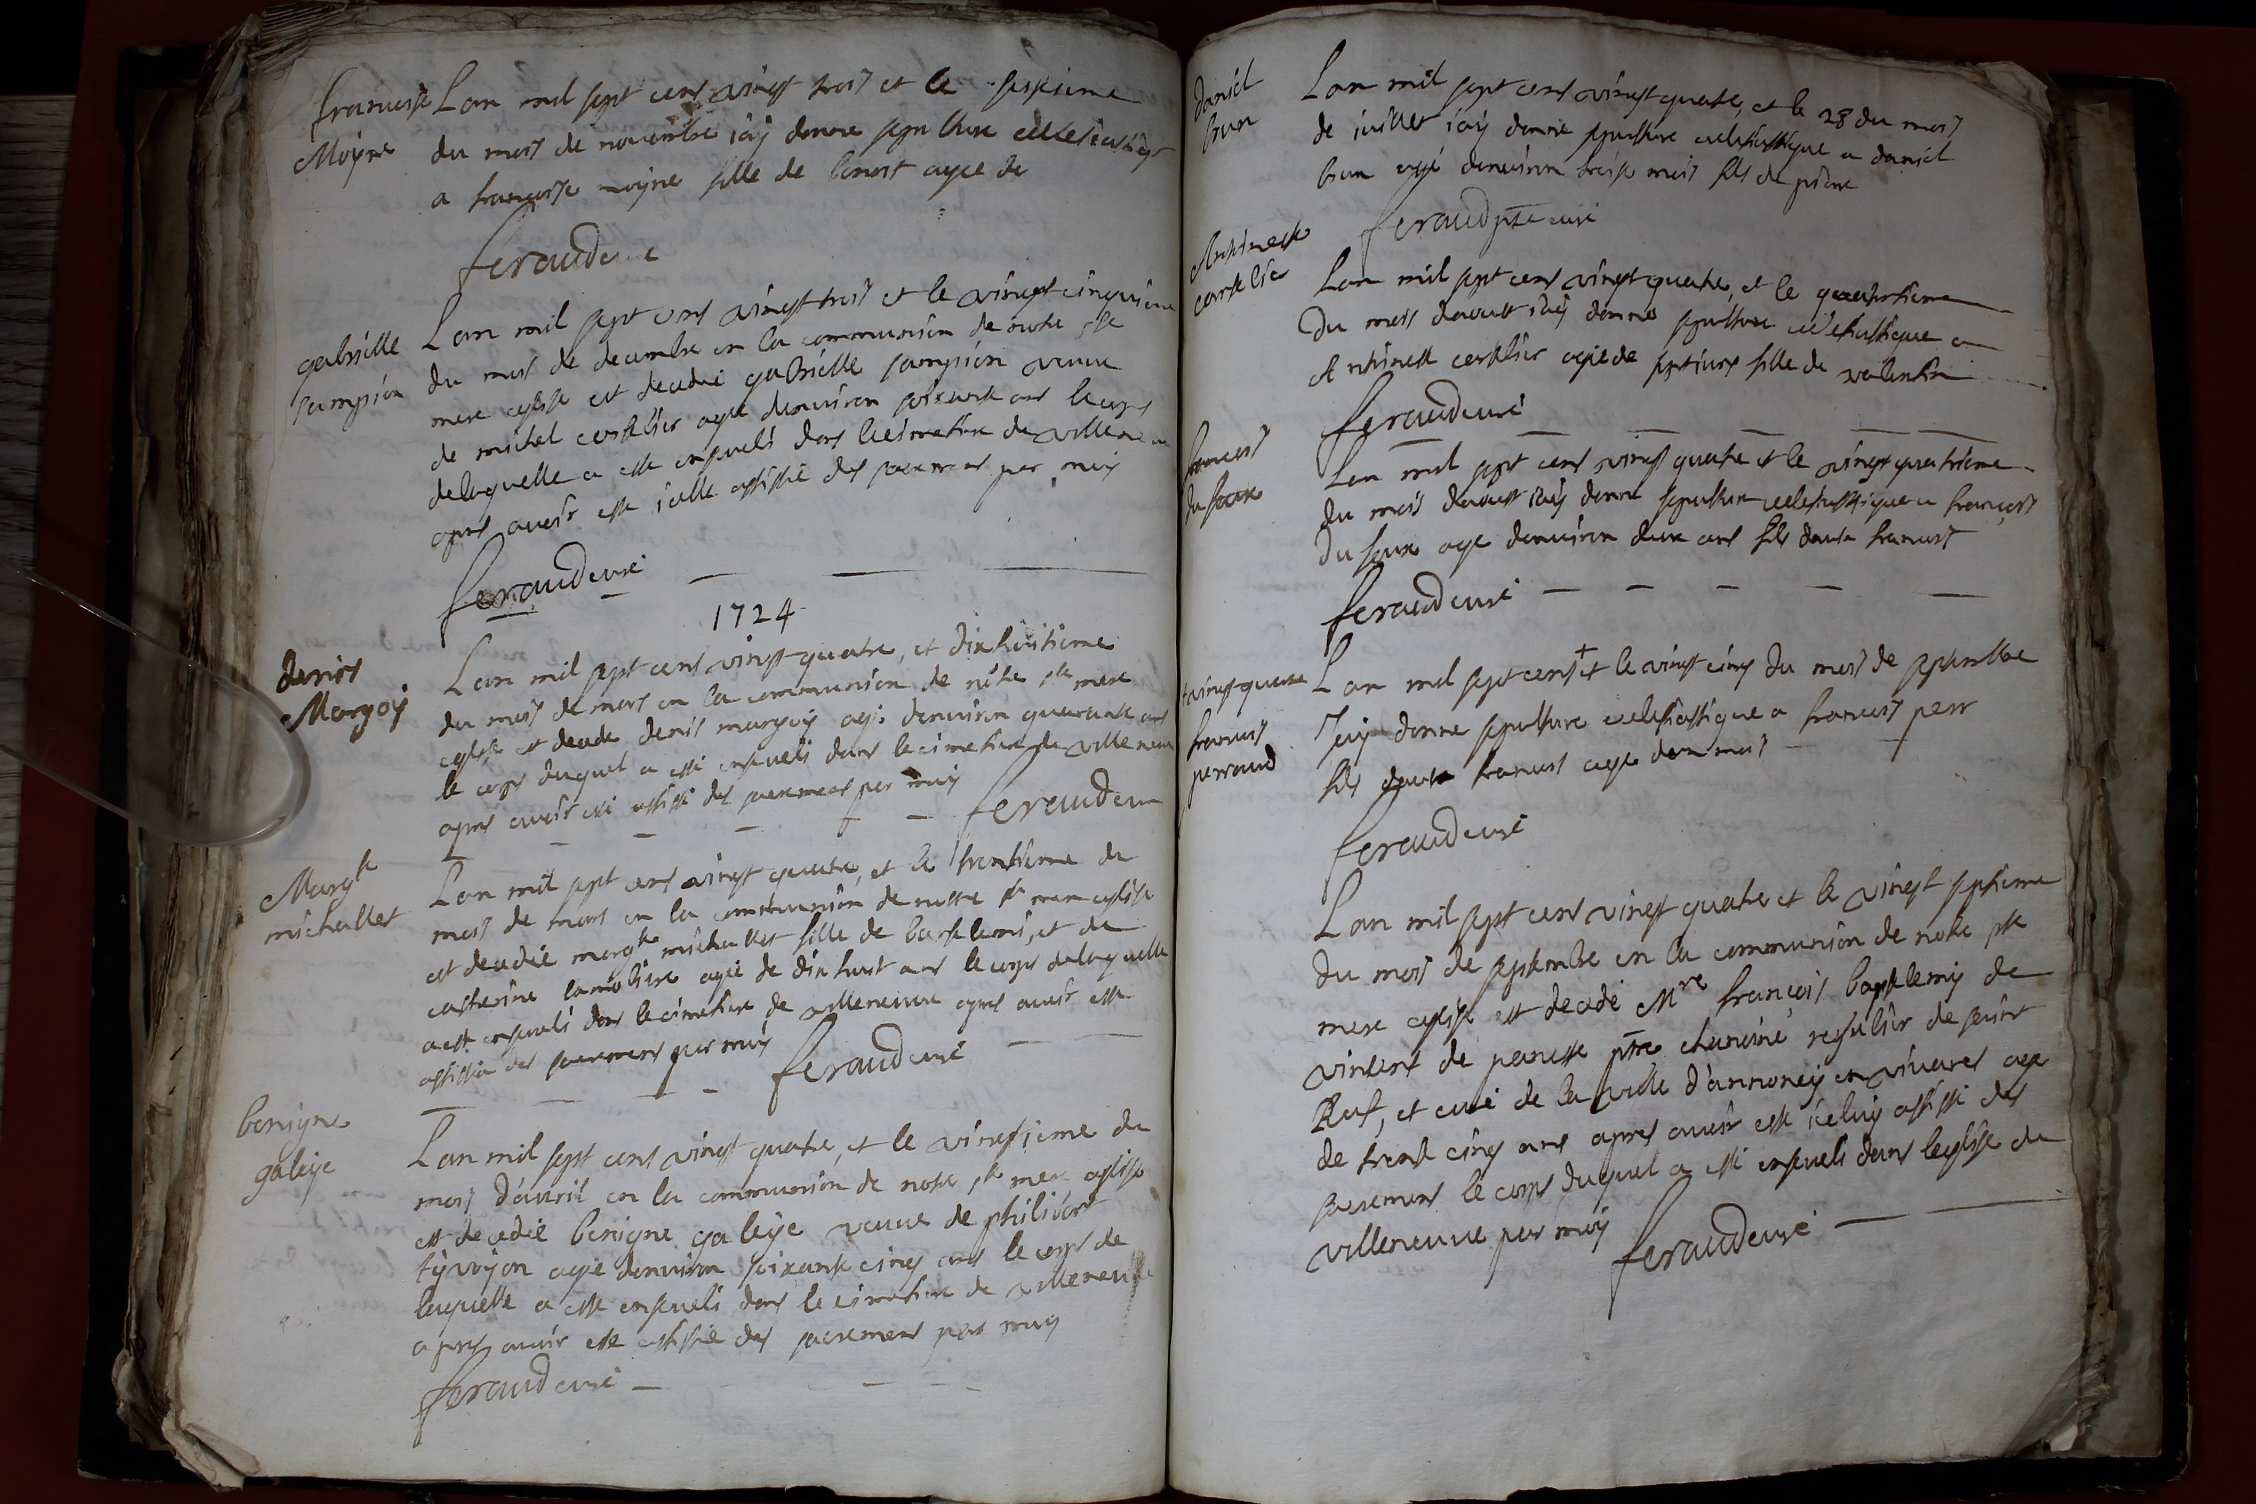 francoise
Moyne
Lan mil sept cens vingt trois et le seisieme
du mois de novembre iay donne sepulture
a francoise moyne fille de benoit agee de
feraud curé
gabrielle
sampsion
Lan mil sept cens vingt trois et le vingt cinquieme
du mois de decembre en la communion de notre ste
mere eglise est decedée gabrielle sampsion veuve
de michel cartelier agee denviron soixante ans le corps
de laquelle a esté enseveli dans le cimetiere de villeneuve
apres avoir esté icelle assistée des sacremens par moy
feraud curé
1724
denis
Margoy
Lan mil sept cens vingt quatre, et dixhuitieme
du mois de mars en la communion de nôtre ste mere
eglise est decedé denis margoy agé denviron quarante ans
le corps duquel a esté enseveli dans le cimetiere de villeneuve
apres avoir esté assisté des sacremens par moy
feraud curé
Margte
michallet
Lan mil sept cens vingt quatre, et le trentieme du
mois de mars en la communion de nostre ste mere eglise
est decedée margte michallet fille de bartelemi, et de
catherine lamoliere agée de dix huit ans le corps de laquelle
a esté enseveli dans le cimetiere de villeneuve apres avoir esté
assistée des sacremens par moy feraud curé
benigne
galeye
Lan mil sept cens vingt quatre, et le vingtieme du
mois d'avril en la communion de notre ste mere eglise
est decedée benigne galeye veuve de philibert
agée denviron soixante cinq ans le corps de
laquelle a esté enseveli dans le cimetiere de villeneuve
apres avoir esté assistée des sacremens par moy
feraud curé
daniel
brun
Lan mil sept cens vingt quatre, et le 28 du mois
de juillet iay donné sepulture eclesiastique a daniel
brun agé denviron treise mois fils de pierre
feraud ptre curé
Anthinette
cartelie
Lan mil sept cens vingt quatre, et le
du mois daoust iay donné sepulture eclesiastique a
Anthinette cartelier agée de sept jours fille de valentin
feraud curé
francois
du four
Lan mil sept cens vingt quatre et le vingt quatrieme
du mois daoust iay donné sepulture eclesiastique a françois
du four agé denviron deux ans fils dautre francois
feraud curé
+ vingt quatre
francois
perraud
Lan mil sept cens + et le vingt cinq du mois de septembre
Jay donne sepulture eclesiastique a francois perr
fils dautre francois agé de mois
feraud curé
Lan mil sept cens vingt quatre et le vingt septieme
du mois de septembre en la communion de notre ste
mere eglise est decedé Mre françois bartelemy de
vincent de panette ptre chanoine regulier de saint
Ruf, et curé de la ville d'annoney en vivares agé
de trente cinq ans apres avoir esté iceluy assisté des
sacremens le corps duquel a esté enseveli dans leglise de
villeneuve par moy feraud curé